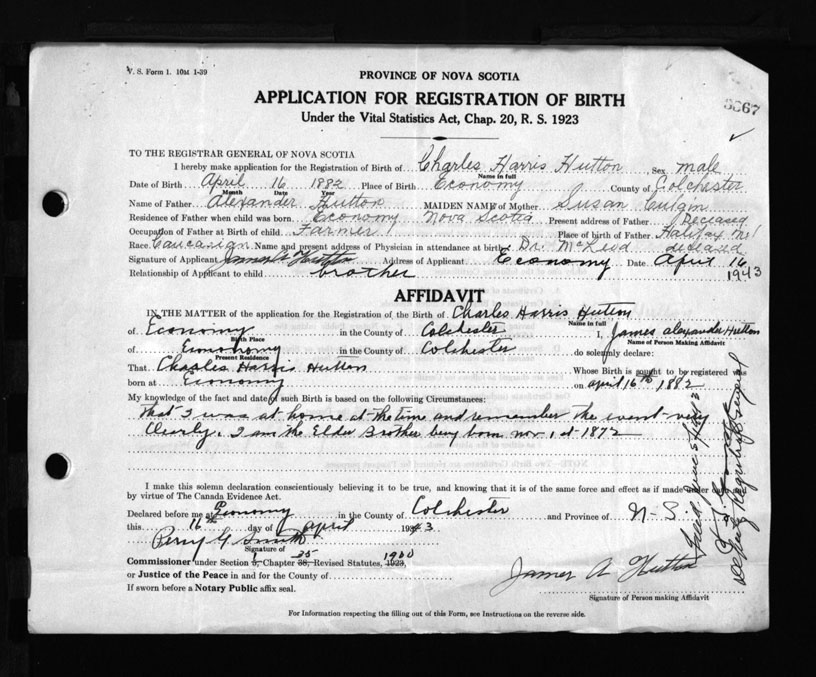 V. S. Form 1. 10M 1-39
PROVINCE OF NOVA SCOTIA
APPLICATION FOR REGISTRATION OF BIRTH
Under the Vital Statistics Act, Chap. 20, R. S. 1923
TO THE REGISTRAR GENERAL OF NOVA SCOTIA
I hereby make application for the Registration of Birth of Charles Harris Hutton Sex male
Name in full
Date of Birth April 16 1882 Place of Birth Economy County of Colchester
Month Day Year
Name of Father Alexander Hutton MAIDEN NAME of Mother Susan
Residence of Father when child was born Economy Nova Scotia Present address of Father Deceased
Occupation of Father at Birth of child Farmer Place of birth of Father Halifax
Race Caucasian Name and present address of Physician in attendance at birth Dr. deceased
Signature of Applicant James A Hutton Address of Applicant Economy Date April 16
1943
Relationship of Applicant to child brother
AFFIDAVIT
IN THE MATTER of the application for the Registration of the Birth of Charles Harris Hutton
Name in full
of Economy in the County of Colchester I, James Alexander Hutton
Birth Place Name of Person Making Affidavit
of Economy in the County of Colchester do solemnly declare:
Present Residence
That Charles Harris Hutton Whose Birth is sought to be registered was
born at Economy on April 16th 1882
My knowledge of the fact and date of such Birth is based on the following Circumstances:
that I was at home at the time and remember the event very
Clearly. I am the Elder Brother being born Nov 1872
I make this solemn declaration conscientiously believing it to be true, and knowing that it is of the same force and effect as if made under oath
by virtue of The Canada Evidence Act.
Declared before me at Economy in the County of Colchester and Province of N. S.
this 16th day of April 1943
Perry G Smith
Signature of
Commissioner under Section 5, Chapter 38, 35 Revised Statutes, 1923, 1900
or Justice of the Peace in and for the County of
If sworn before a Notary Public affix seal.
James A Hutton
Signature of Person making Affidavit
For Information respecting the filling out of this Form, see Instructions on the reverse side.